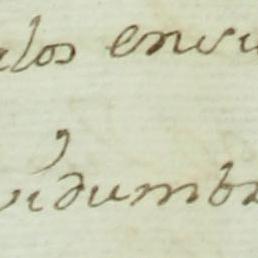 alos envi
vidumbr